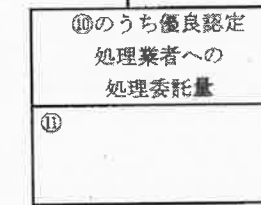 ⑩のうち優良認定
処理業者への
処理委託量
⑪